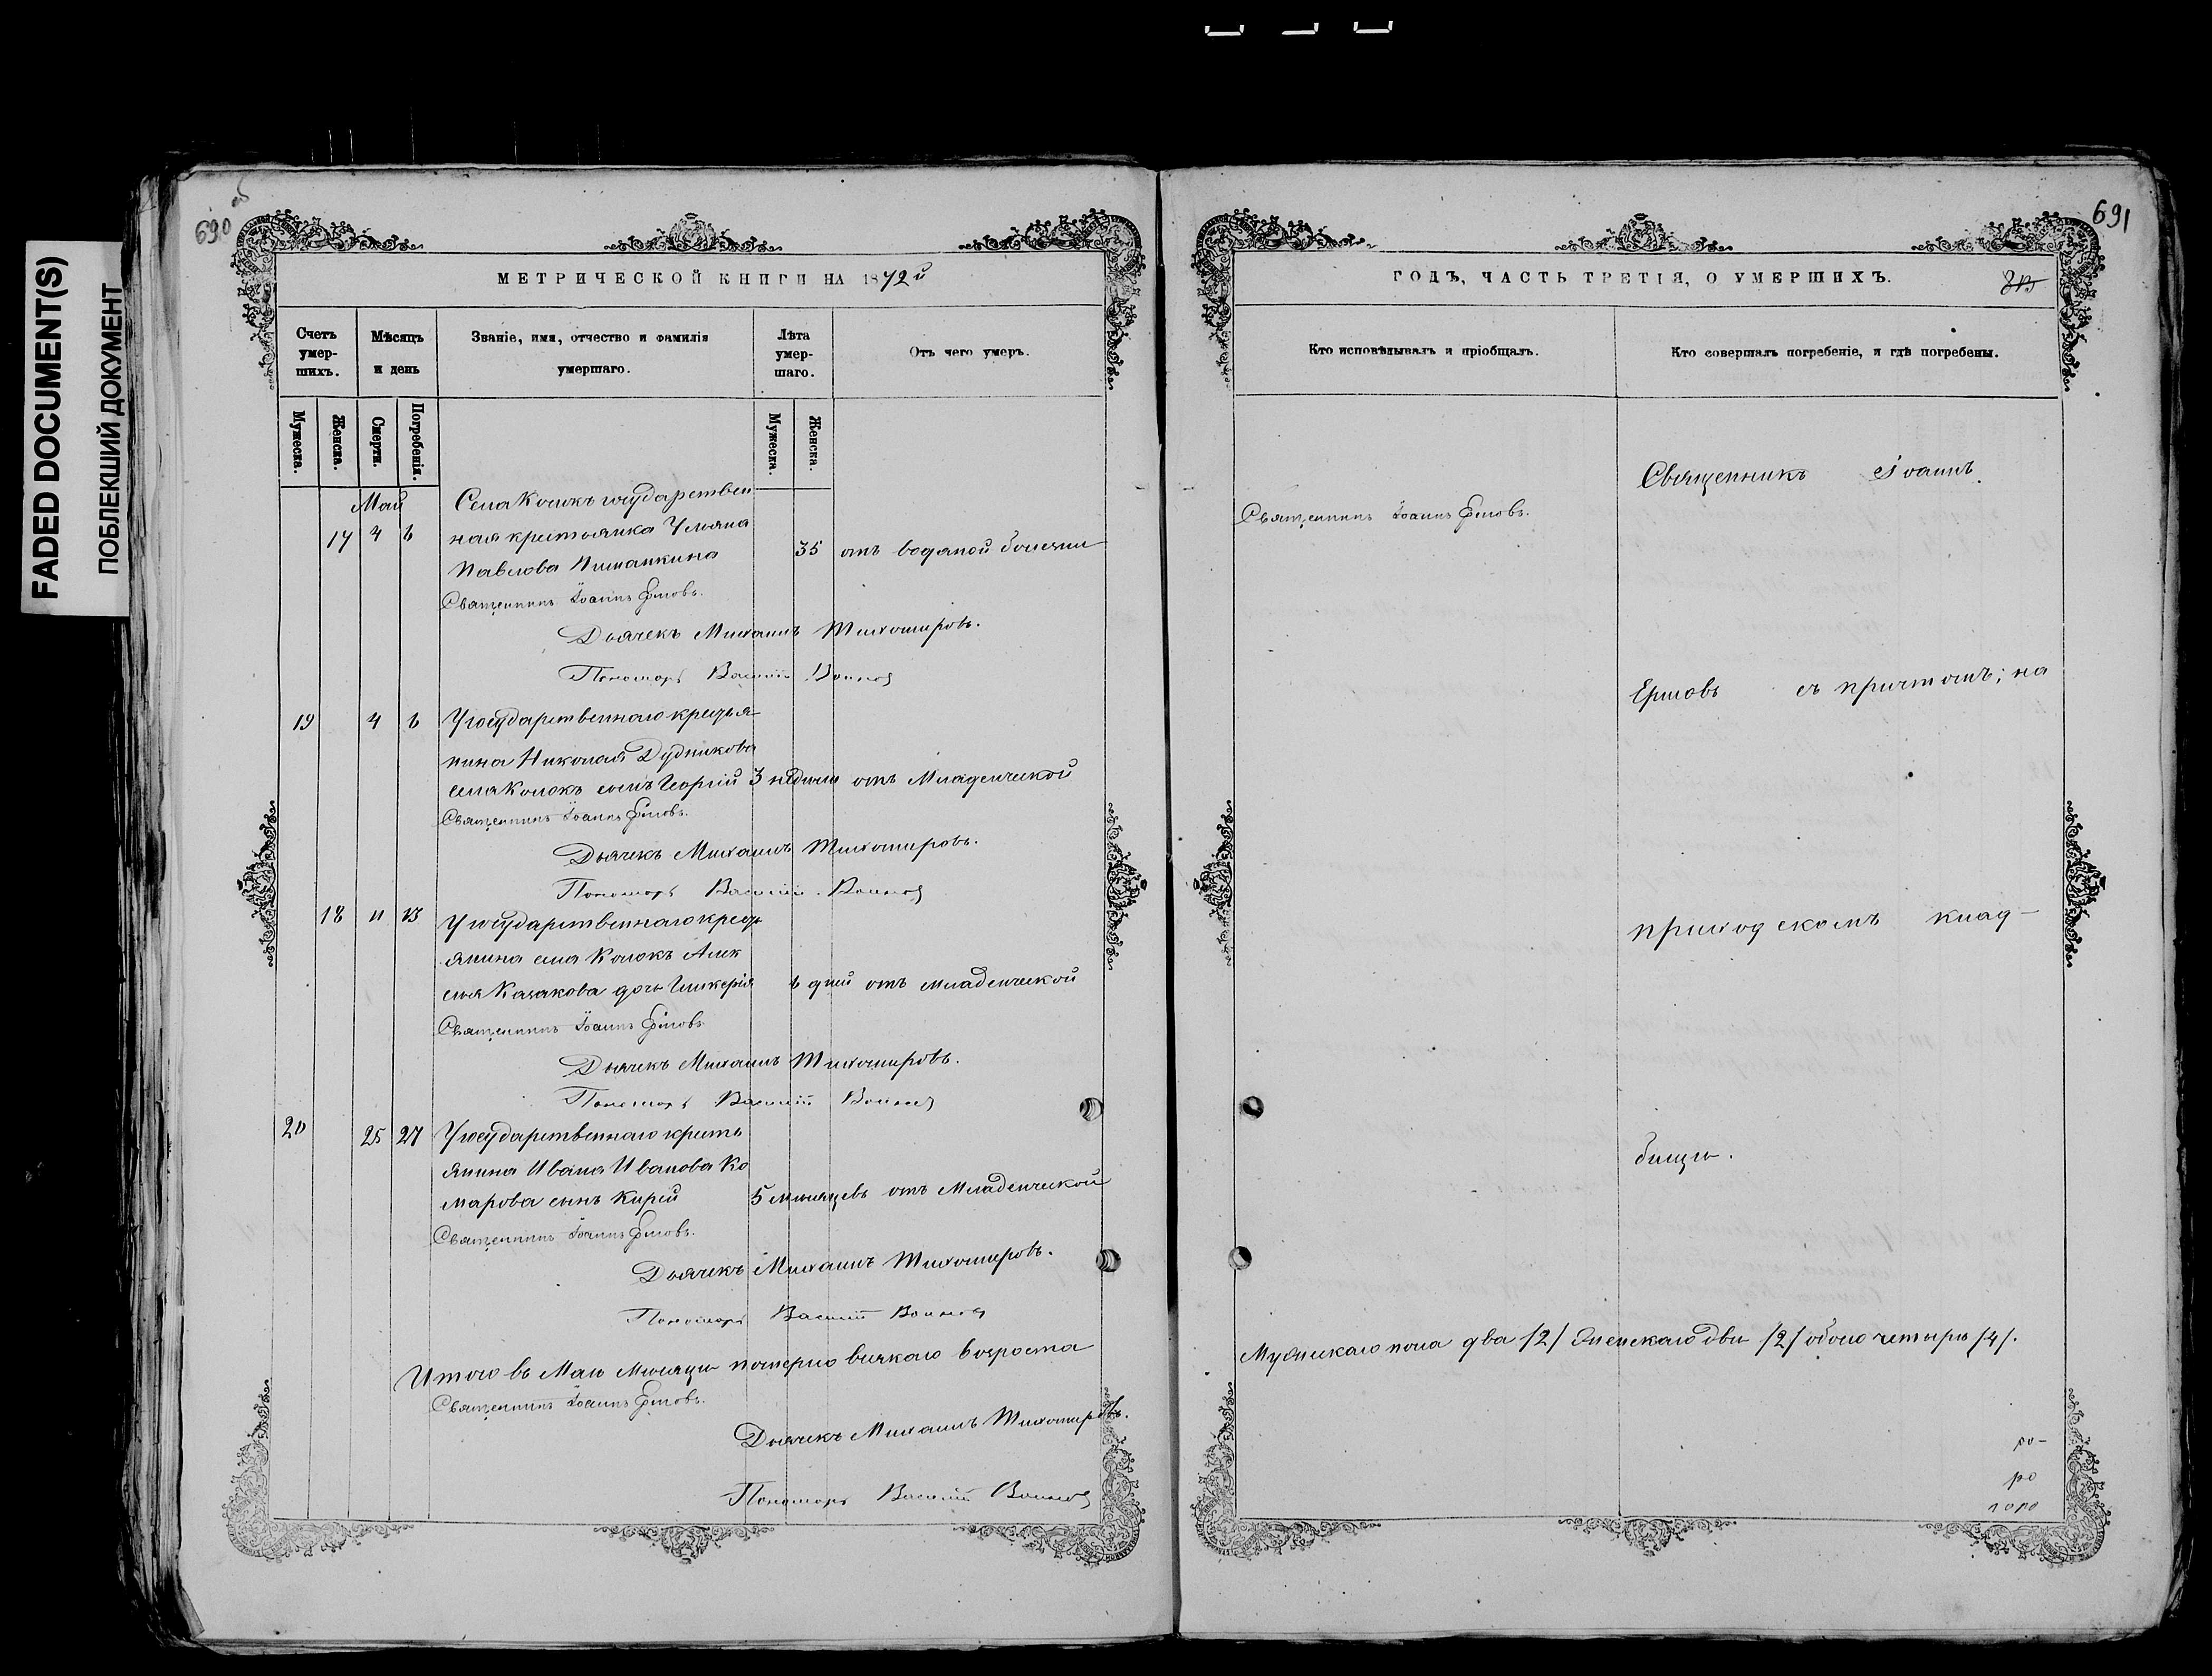 FADED DOCUMENT(S)
ПОБЛЕКШИЙ ДОКУМЕНТ
690 об
МЕТРИЧЕСКОЙ КНИГИ НА 1872й
Счетъ умер-шихъ.
Мѣсяцъ и день
Званіе, имя, отчество и фамилія умершаго.
Лѣта умер-шаго.
Отъ чего умеръ.
Мужеска.
Женска.
Смерти.
Погребенія.
Мужеска.
Женска.
Май
Села Колокъ государствен
17 4 6 ная крестьянка Ульяна
Павлова 35 отъ водяной болезни
Священникъ Іоаннъ Ершовъ.
Дьячекъ Михаилъ Тихомировъ.
Пономарь Василій
19 4 6 У государственнаго кресьтья
нина Николая Дудникова
села Колокъ сынъ Георгій 3 недели отъ Младенческой
Священникъ Іоаннъ Ершовъ.
Дьячекъ Михаилъ Тихомировъ.
Пономарь Василій
18 11 13 У государственнаго кресть
янина села Колокъ Алек
сея Казакова дочь Гликерія 6 дней отъ младенческой
Священникъ Іоаннъ Ершовъ
Дьячекъ Михаилъ Тихомировъ.
Пономарь Василій
20 25 27 У государственнаго кресть
янина Ивана Иванова Ко
марова сынъ Кирей 5 месяцевъ отъ Младенческой
Священникъ Іоаннъ Ершовъ.
Дьячекъ Михаилъ Тихомировъ.
Пономарь Василій
Итого въ Маѣ Месяце померло всякаго возроста
Священникъ Іоаннъ Ершовъ.
Дьячекъ Михаилъ Тихомировъ.
Пономарь Василій
691
ГОДЪ, ЧАСТЬ ТРЕТІЯ, О УМЕРШИХЪ.
Кто исповѣдывалъ и пріобщалъ.
Кто совершалъ погребеніе, и гдѣ погребены.
Священникъ Іоаннъ
Священникъ Іоаннъ Ершовъ.
Ершовъ съ причтомъ; на
приходскомъ клад-
бище.
Мужескаго пола два /2/ Женскаго две /2/ обоего четыре /4/.